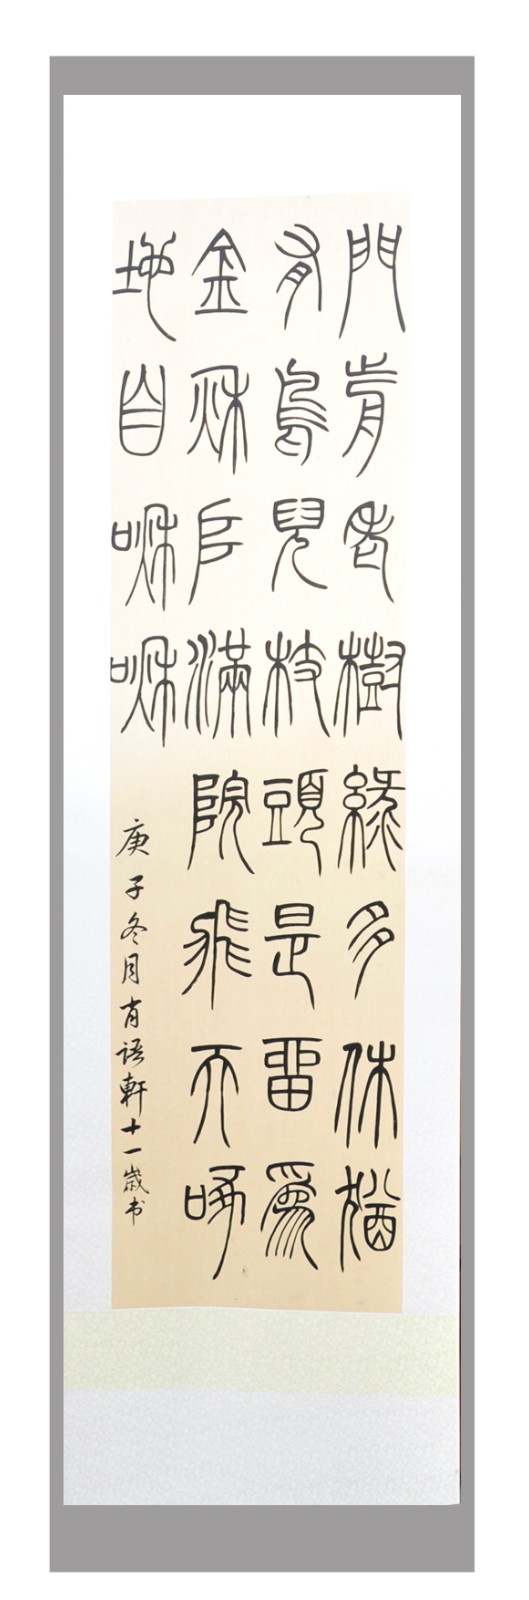 門前老樹綠多休猶
有鳥兒枝頭是留為
金秋戶滿院飛天啼
地自啾啾
庚子冬月肖語軒十一歲书